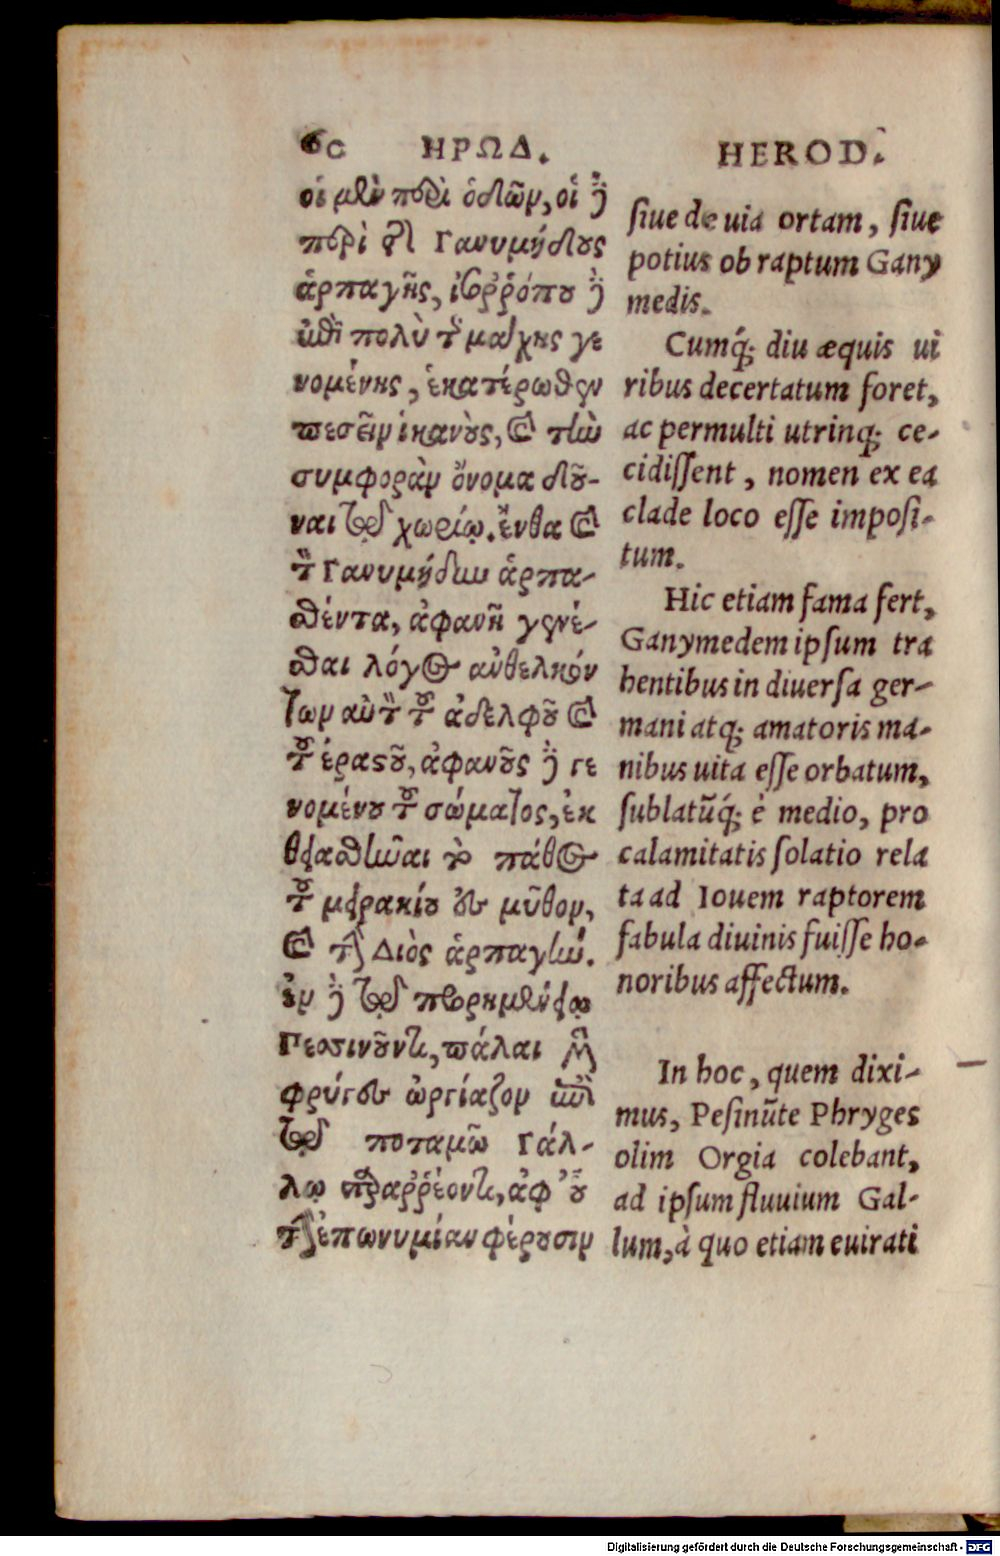 60 ΗΡΩΔ.
οἱ μὲν περὶ ὁδῶν, οἱ δὲ
περὶ τῆς Γανυμήδους
ἁρπαγῆς, ἰσορρόπου δὲ
ἐπὶ πολὺ τῆς μάχης γε
νομένης, ἑκατέρωθεν
πεσεῖν ἱκανοὺς, καὶ τὴν
συμφορὰν ὄνομα δοῦ-
ναι τῷ χωρίῳ. ἔνθα καὶ
τὸν Γανυμήδην ἁρπα-
σθέντα, ἀφανῆ γενέ-
σθαι λόγος ἀνθελκόν
των αὐτὸν τοῦ ἀδελφοῦ καὶ
τοῦ ἐραστοῦ, ἀφανοῦς δὲ γε
νομένου τοῦ σώματος, ἐκ
θειασθῆναι τὸ πάθος
τοῦ μειρακίου ἐς μῦθον,
καὶ τὴν Διὸς ἁρπαγήν.
ἐν δὲ τῷ προειρημένῳ
Πεσσινοῦντι, πάλαι μὲν
φρύγες ὠργίαζον ἐπὶ
τῷ ποταμῷ Γάλ-
λῳ παραρρέοντι, ἀφ' οὗ
τὴν ἐπωνυμίαν φέρουσιν
HEROD.
siue de uia ortam, siue
potius ob raptum Gany
medis.
Cumq́; diu æquis ui
ribus decertatum foret,
ac permulti utrinq; ce-
cidissent, nomen ex ea
clade loco esse imposi-
tum.
Hic etiam fama fert,
Ganymedem ipsum tra
hentibus in diuersa ger-
mani atq; amatoris ma-
nibus uita esse orbatum,
sublatũq́; è medio, pro
calamitatis solatio rela
ta ad Iouem raptorem
fabula diuinis fuisse ho-
noribus affectum.
In hoc, quem dixi-
mus, Pesinũte Phryges
olim Orgia colebant,
ad ipsum fluuium Gal-
lum, à quo etiam euirati
Digitalisierung gefördert durch die Deutsche Forschungsgemeinschaft - DFG